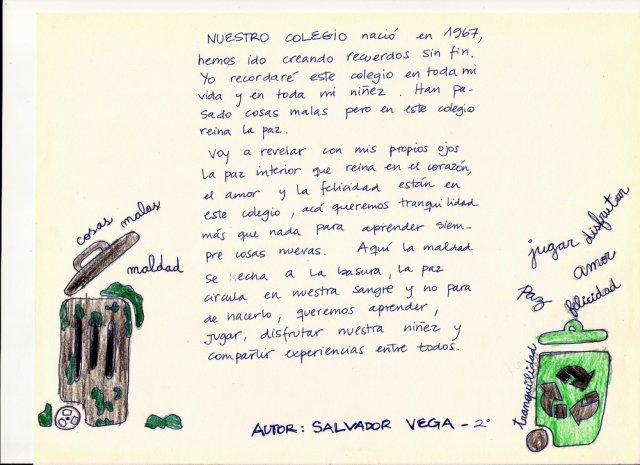 NUESTRO COLEGIO nació en 1967,
hemos ido creando recuerdos sin fin.
Yo recordaré este colegio en toda mi
vida y en toda mi niñez. Han pa-
sado cosas malas pero en este colegio
reina la paz.
Voy a revelar con mis propios ojos
la paz interior que reina en el corazón,
el amor y la felicidad están en
este colegio, acá queremos tranquilidad
más que nada para aprender siem-
pre cosas nuevas. Aquí la maldad
se hecha a la basura, la paz
circula en nuestra sangre y no para
de hacerlo, queremos aprender,
jugar, disfrutar nuestra niñez y
compartir experiencias entre todos.
cosas malas
maldad
jugar disfrutar
amor
Paz
felicidad
tranquilidad
AUTOR: SALVADOR VEGA - 2°